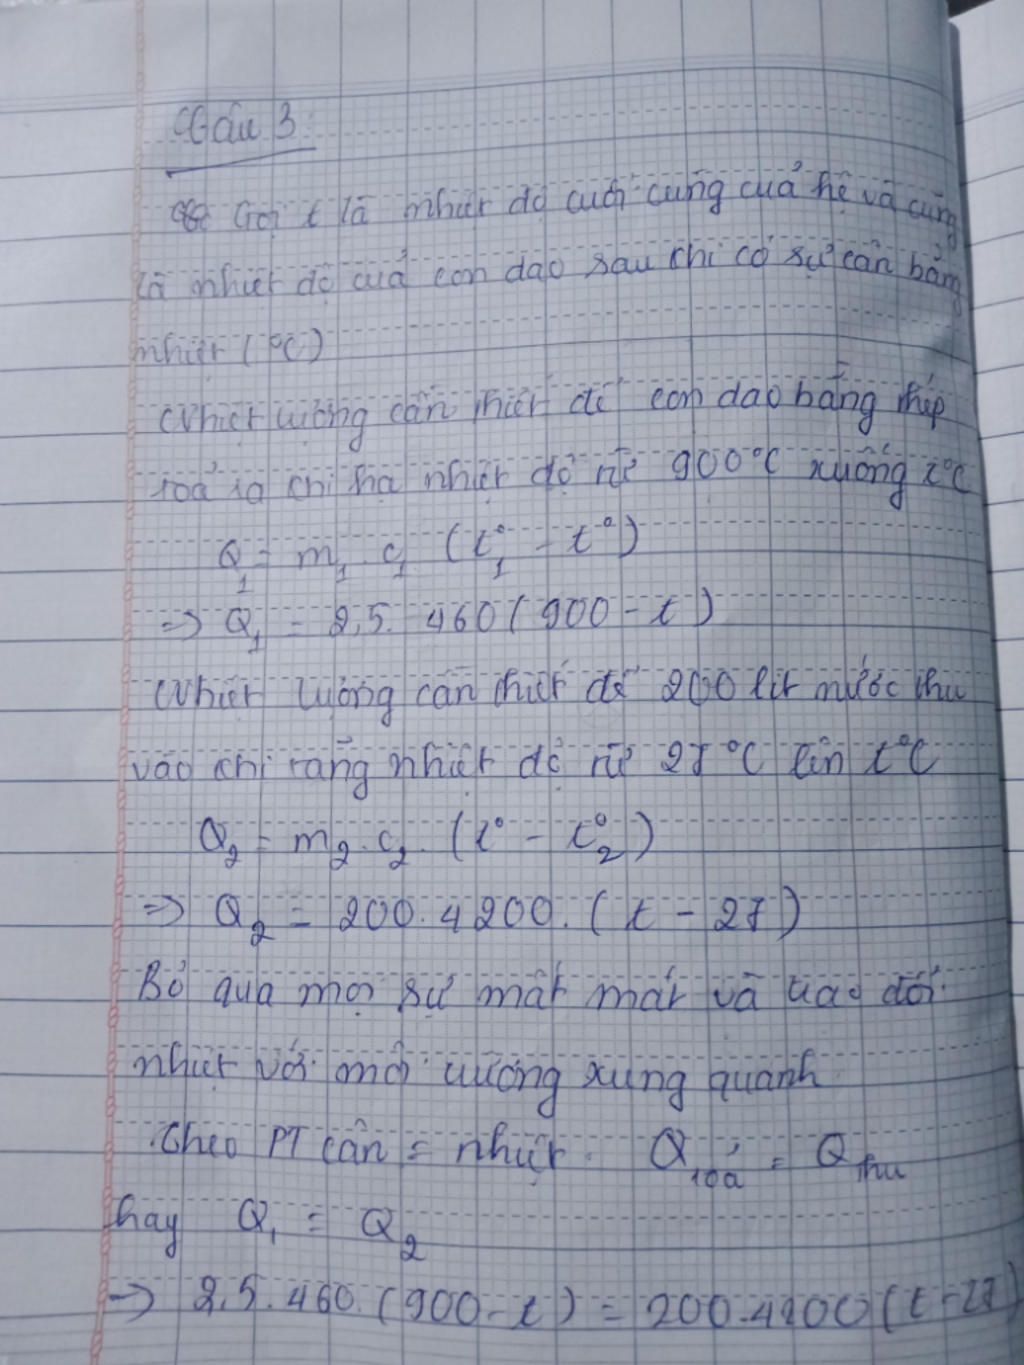 Câu 3:
Gọi t là nhiệt độ cuối cùng của hệ và cũng
là nhiệt độ của con dao sau khi có sự cân bằng
nhiệt (°C)
Nhiệt lượng cần thiết để con dao bằng thép
toả ra khi hạ nhiệt độ từ 900°C xuống t°C
Q₁ = m₁ c₁ (t₁° - t°)
=> Q₁ = 2,5. 460 (900 - t)
Nhiệt lượng cần thiết để 200 lít nước thu
vào khi tăng nhiệt độ từ 27°C lên t°C
Q₂ = m₂.c₂. (t° - t₂°)
=> Q₂ = 200.4200.(t - 27)
Bỏ qua mọi sự mất mát và trao đổi
nhiệt với môi trường xung quanh
Theo PT cân = nhiệt. Q toả = Q thu
hay Q₁ = Q₂
-> 2,5.460.(900-t) = 200.4200(t-27)